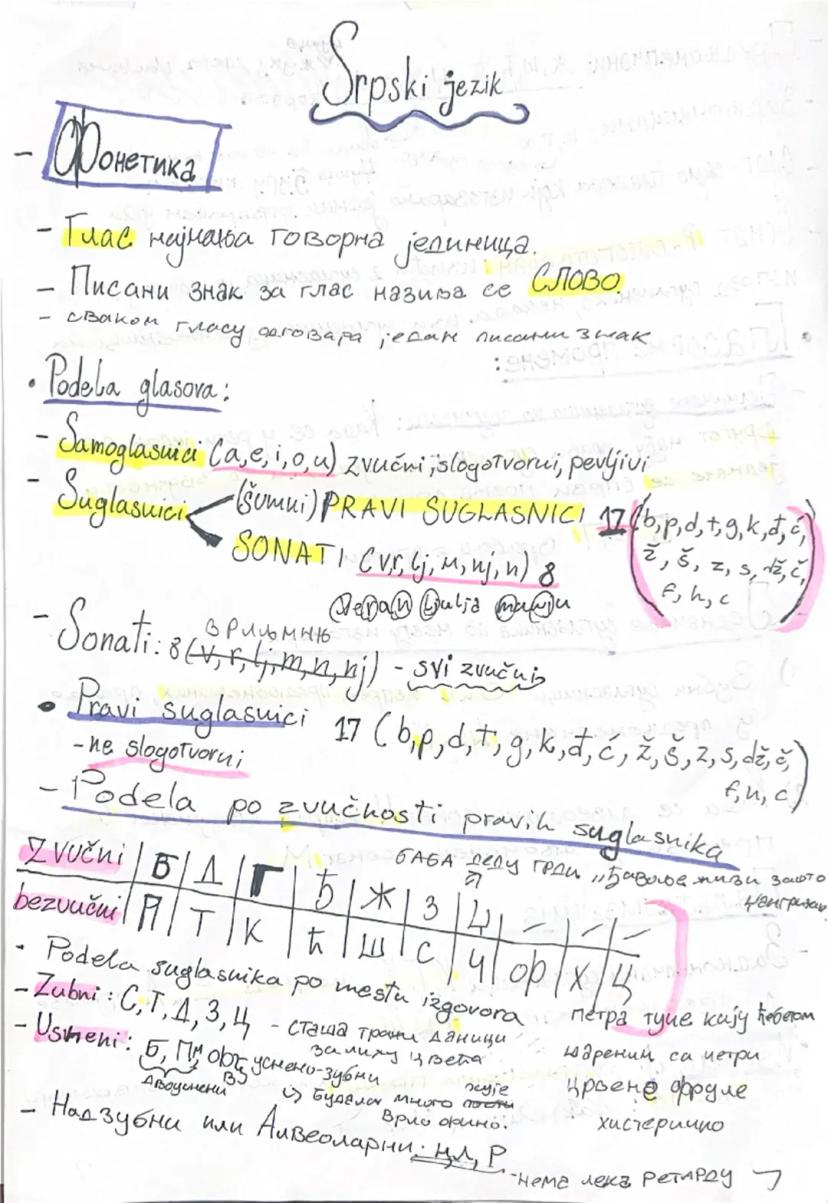 Srpski jezik
- Фонетика
- Глас најмања говорна јединица.
- Писани знак за глас назива се СЛОВО.
- сваком гласу одговара један писани знак
• Podela glasova:
- Samoglasnici (a,e,i,o,u) zvučni, slogotvorni, pevljivi
- Suglasnici (šumni) PRAVI SUGLASNICI 17 (b,p,d,t,g,k,đ,ć,
ž, š, z, s, dž, č,
f, h, c)
SONATI (v,r,lj,m,nj,n) 8
Veran Ljulja manju
ВРЉЉМНЊ
- Sonati: 8 (v, r, lj, m, n, nj) - svi zvučni
• Pravi suglasnici 17 (b,p,d,t,g,k,đ,ć,ž,š,z,s,dž,č,
f,h,c)
- ne slogotvorni
- Podela po zvučnosti pravih suglasnika
баба деду грди „Ђавоље жизи зашто
Zvučni | Б | Д | Г | Ђ | Ж | З | Џ | – | – | –
bezvučni | П | Т | К | Ћ | Ш | С | Ч | Ф | Х | Ц
• Podela suglasnika po mestu izgovora
- Zubni: С, Т, Д, З, Ц - Сташа тражи даници
за лиху цвета
- Usneni: Б, П, М, Ф, В усnено-зубни
двоуснени
↳ Будала много
врло фино.
петра туче кију ћебетом
шарений са петри
црвене фруле
хистерично
- Надзубни или Алвеоларни: Н, Л, Р
- нема лека ретарду